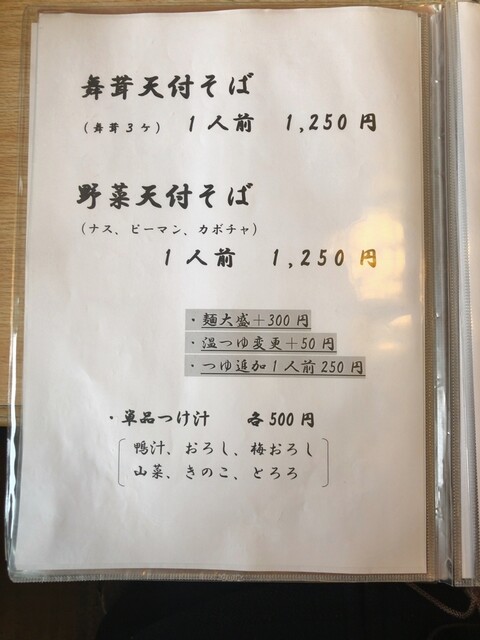 舞茸天付そば
（舞茸3ケ） 1人前 1,250円
野菜天付そば
（ナス、ピーマン、カボチャ）
1人前 1,250円
・麺大盛＋300円
・温つゆ変更＋50円
・つゆ追加1人前250円
・単品つけ汁 各500円
鴨汁、おろし、梅おろし
山菜、きのこ、とろろ